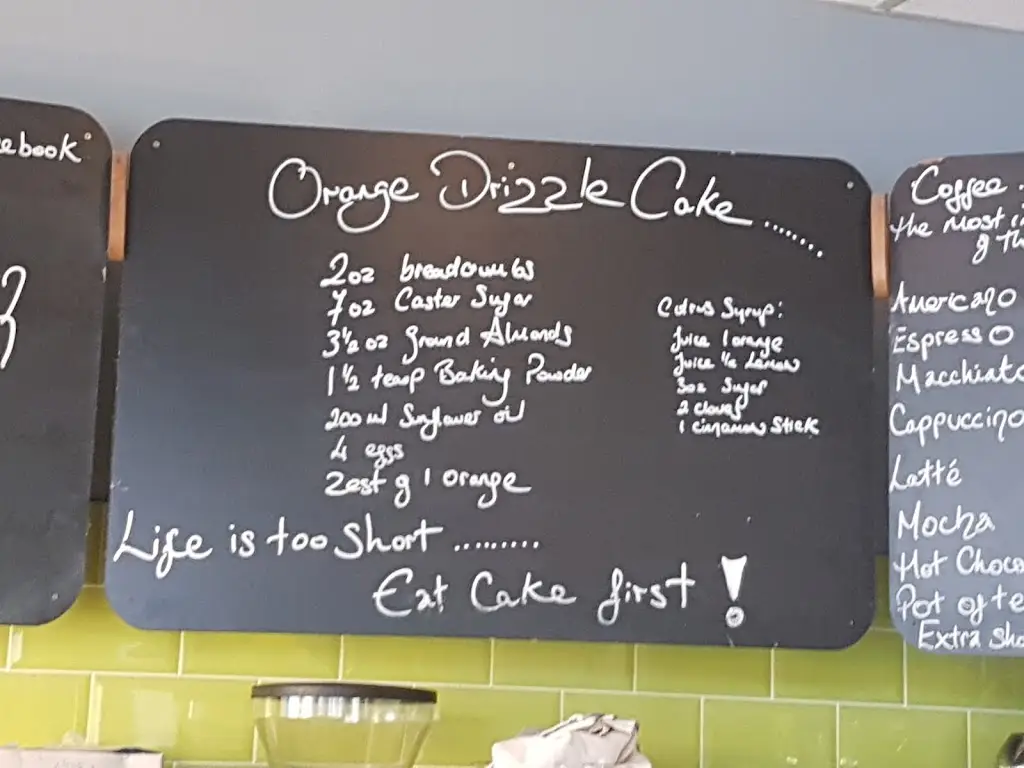 ebook
Orange Drizzle Cake.......
2oz breadcrumbs
7oz Caster Sugar
3½oz ground Almonds
1½ teasp Baking Powder
200ml Sunflower oil
4 eggs
Zest of 1 orange
Citrus Syrup:
Juice 1 orange
Juice ½ Lemon
3oz Sugar
2 cloves
1 cinnamon Stick
Life is too Short .........
Eat Cake first !
Coffee
the most
of th
Americano
Espresso
Macchiato
Cappuccino
Latté
Mocha
Hot Choco
Pot of te
Extra Sho